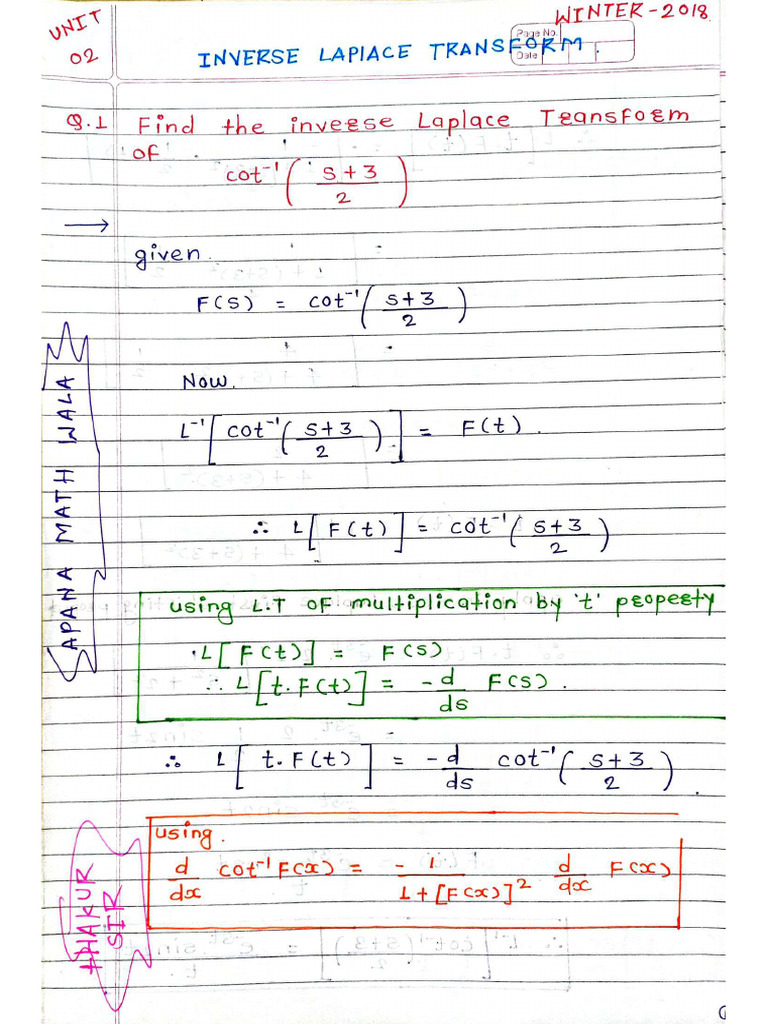 UNIT 02
WINTER-2018
Page No.
Date
INVERSE LAPLACE TRANSFORM.
Q.1 Find the inverse Laplace Transform
of
cot⁻¹( s+3 / 2 )
→
given.
F(s) = cot⁻¹( s+3 / 2 )
Now.
L⁻¹[ cot⁻¹( s+3 / 2 ) ] = F(t).
∴ L[ F(t) ] = cot⁻¹( s+3 / 2 )
using L.T OF multiplication by 't' property
L[ F(t) ] = F(s)
∴ L[ t.F(t) ] = -d/ds F(s).
∴ L[ t.F(t) ] = -d/ds cot⁻¹( s+3 / 2 ).
using.
d/dx cot⁻¹F(x) = - 1 / 1+[F(x)]² d/dx F(x)
APANA MATH WALA
THAKUR
SIR